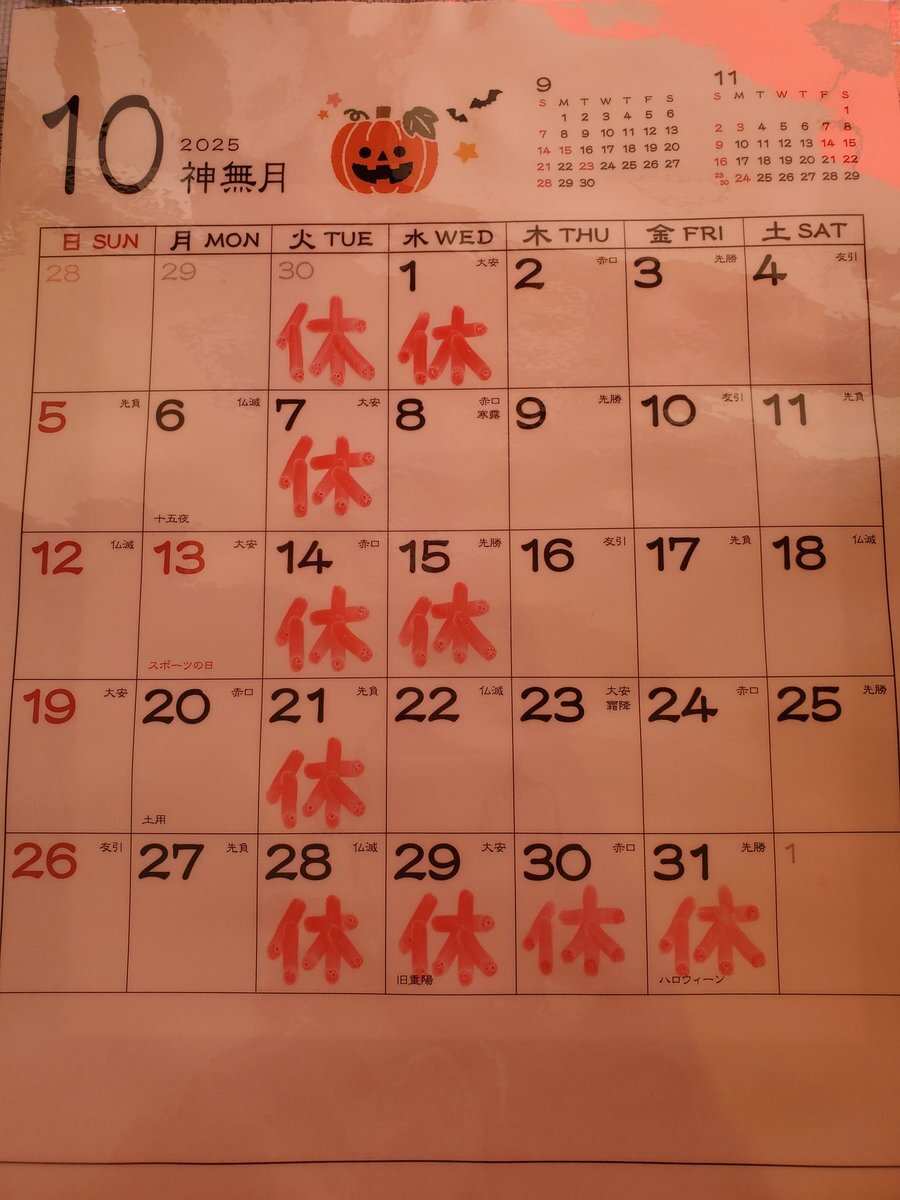 10
2025
神無月
9
S M T W T F S
1 2 3 4 5 6
7 8 9 10 11 12 13
14 15 16 17 18 19 20
21 22 23 24 25 26 27
28 29 30
11
S M T W T F S
1
2 3 4 5 6 7 8
9 10 11 12 13 14 15
16 17 18 19 20 21 22
23/30 24 25 26 27 28 29
日 SUN 月 MON 火 TUE 水 WED 木 THU 金 FRI 土 SAT
28 29 30 1 大安 2 赤口 3 先勝 4 友引
休 休
5 先負 6 仏滅 7 大安 8 赤口 9 先勝 10 友引 11 先負
寒露
休
十五夜
12 仏滅 13 大安 14 赤口 15 先勝 16 友引 17 先負 18 仏滅
休 休
スポーツの日
19 大安 20 赤口 21 先負 22 仏滅 23 大安 24 赤口 25 先勝
霜降
休
土用
26 友引 27 先負 28 仏滅 29 大安 30 赤口 31 先勝 1
休 休 休 休
旧重陽 ハロウィーン